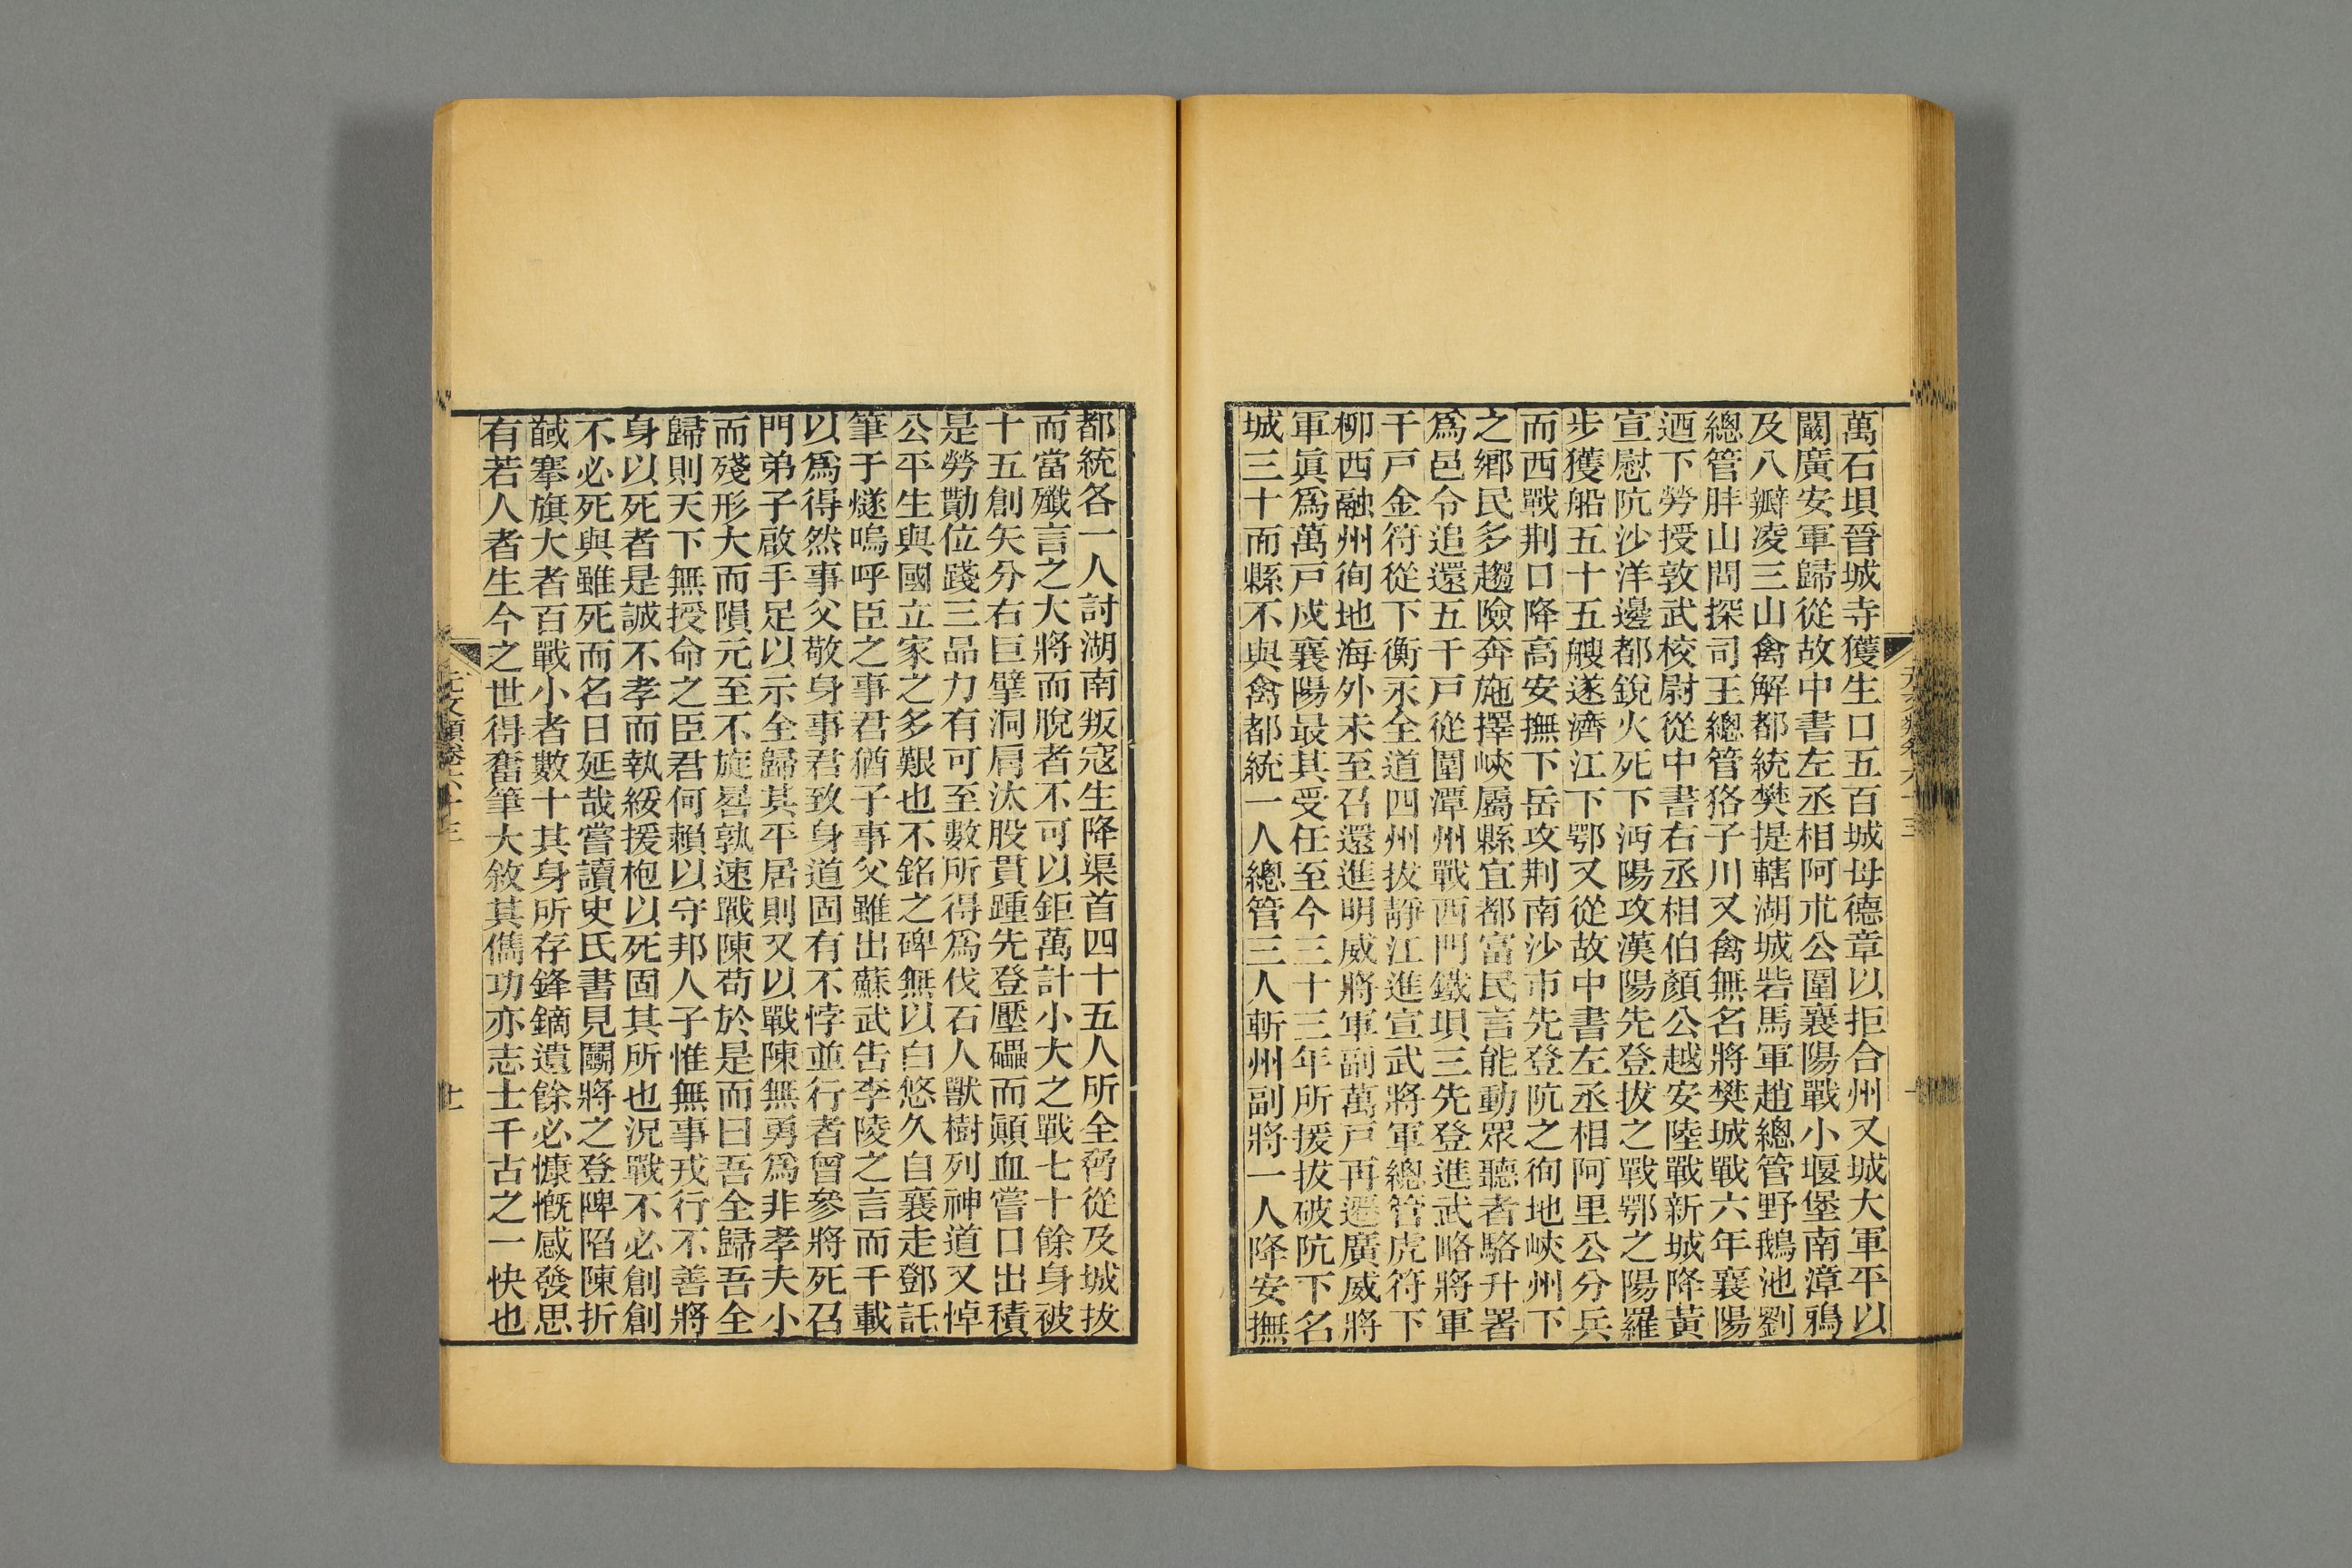 萬石垻晉城寺獲生口五百城母德章以拒合州又城大軍平以
闞廣安軍歸從故中書左丞相阿朮公圍襄陽戰小堰堡南漳鴉
及八瓣凌三山禽解都統樊提轄湖城砦馬軍趙總管野鵝池劉
總管胖山問探司王總管狢子川又禽無名將樊城戰六年襄陽
迺下勞授敦武校尉從中書右丞相伯顏公越安陸戰新城降黃
宣慰阬沙洋邊都銳火死下沔陽攻漢陽先登拔之戰鄂之陽羅
步獲船五十五艘遂濟江下鄂又從故中書左丞相阿里公分兵
而西戰荆口降高安撫下岳攻荆南沙市先登阬之徇地峽州下
之鄉民多趨險奔施擇峽屬縣宜都富民言能動眾聽者駱升署
爲邑令追還五千戸從圍潭州戰西門鐵垻三先登進武略將軍
千戸金符從下衡永全道四州拔靜江進宣武將軍總管虎符下
柳西融州徇地海外未至召還進明威將軍副萬戸再遷廣威將
軍眞爲萬戸戍襄陽最其受任至今三十三年所援拔破阬下名
城三十而縣不與禽都統一人總管三人斬州副將一人降安撫
都統各一人討湖南叛寇生降渠首四十五人所全脅從及城拔
而當殲言之大將而脫者不可以鉅萬計小大之戰七十餘身被
十五創矢分右巨擘洞肩汰股貫踵先登壓礧而顚血嘗口出積
是勞勩位踐三品力有可至數所得爲伐石人獸樹列神道又悼
公平生與國立家之多艱也不銘之碑無以白悠久自襄走鄧託
筆于燧嗚呼臣之事君猶子事父雖出蘇武告李陵之言而千載
以爲得然事父敬身事君致身道固有不悖並行者曾參將死召
門弟子啟手足以示全歸其平居則又以戰陳無勇爲非孝夫小
而殘形大而隕元至不旋晷孰速戰陳苟於是而曰吾全歸吾全
歸則天下無授命之臣君何賴以守邦人子惟無事戎行不善將
身以死者是誠不孝而執綏援枹以死固其所也況戰不必創創
不必死與雖死而名日延哉嘗讀史氏書見鬭將之登陴陷陳折
馘搴旗大者百戰小者數十其身所存鋒鏑遺餘必慷慨感發思
有若人者生今之世得奮筆大敘其儁功亦志士千古之一快也
元文類卷六十三